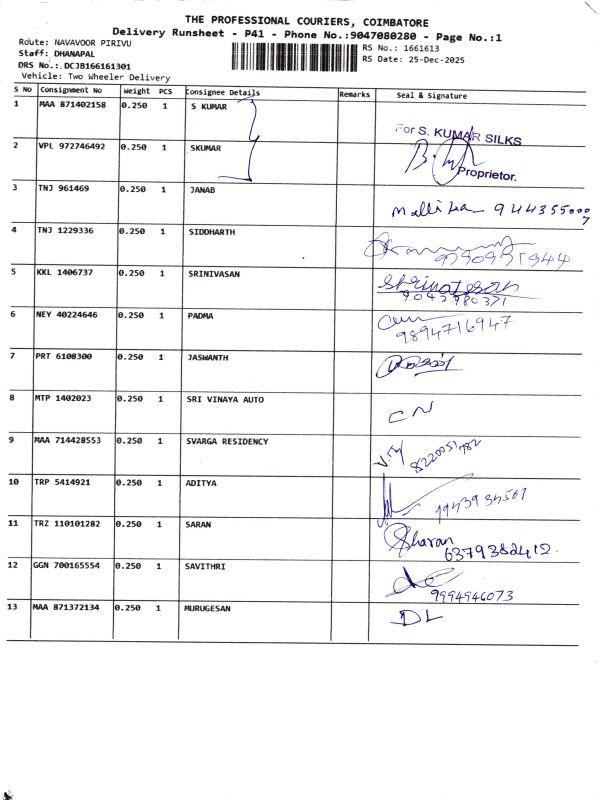 THE PROFESSIONAL COURIERS, COIMBATORE
Delivery Runsheet - P41 - Phone No.:9047080280 - Page No.:1
Route: NAVAVOOR PIRIVU
RS No.: 1661613
Staff: DHANAPAL
RS Date: 25-Dec-2025
DRS No.:.DCJB166161301
Vehicle: Two Wheeler Delivery
S No Consignment No Weight PCS Consignee Details Remarks Seal & Signature
1 MAA 871402158 0.250 1 S KUMAR
For S. KUMAR SILKS
2 VPL 972746492 0.250 1 SKUMAR
Proprietor.
3 TNJ 961469 0.250 1 JANAB
Mallika 9443550007
4 TNJ 1229336 0.250 1 SIDDHARTH
5 KKL 1406737 0.250 1 SRINIVASAN
9043980371
6 NEY 40224646 0.250 1 PADMA
9894716947
7 PRT 6108300 0.250 1 JASWANTH
8 MTP 1402023 0.250 1 SRI VINAYA AUTO
CN
9 MAA 714428553 0.250 1 SVARGA RESIDENCY
8220051782
10 TRP 5414921 0.250 1 ADITYA
11 TRZ 110101282 0.250 1 SARAN
Sharan
6379382412.
12 GGN 700165554 0.250 1 SAVITHRI
9994946073
13 MAA 871372134 0.250 1 MURUGESAN
DL